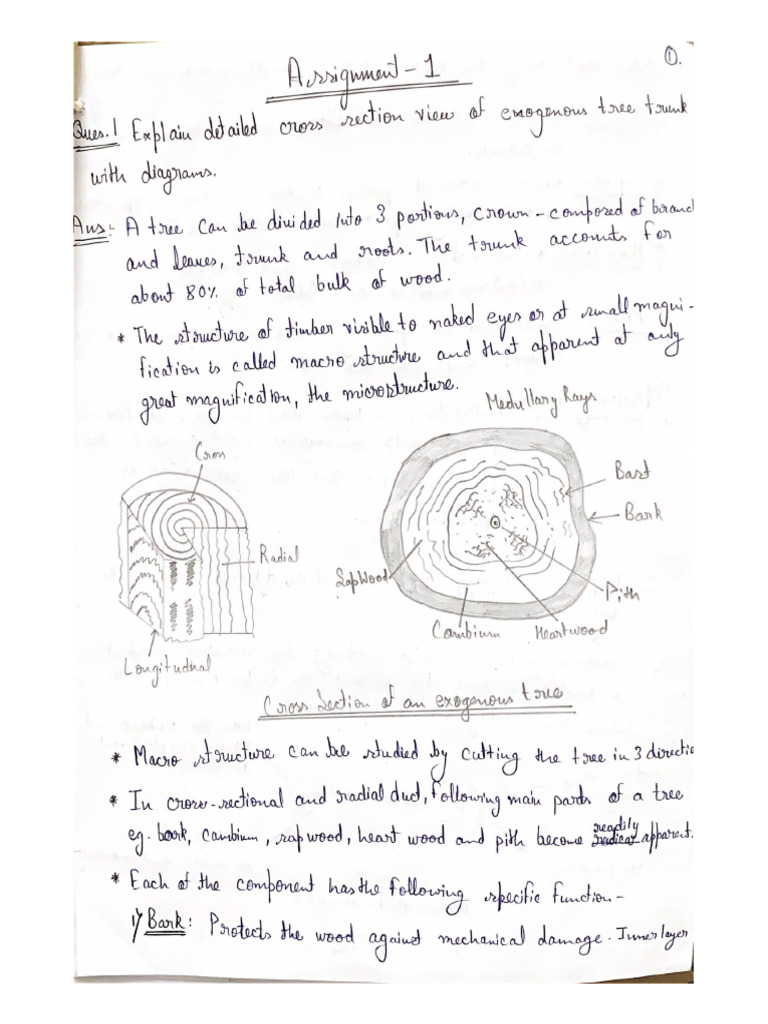 ①.
Assignment-1
Ques.1 Explain detailed cross section view of exogenous tree trunk
with diagrams.
Ans:- A tree can be divided into 3 portions, crown - composed of baranch
and leaves, trunk and roots. The trunk accounts for
about 80% of total bulk of wood.
* The structure of timber visible to naked eyes or at small magni-
fication is called macro structure and that apparent at only
great magnification, the microstructure.
Medullary Rays
Cross
Bast
Bark
Radial
SapWood
Pith
Cambium
Heartwood
Longitudnal
Cross Section of an exogenous tree
* Macro structure can be studied by cutting the tree in 3 directio
* In cross-sectional and radial duct, following main parts of a tree
eg. bark, cambium, sap wood, heart wood and pith become readily apparent.
* Each of the component has the following specific function-
1) Bark: Protects the wood against mechanical damage. Inner layer